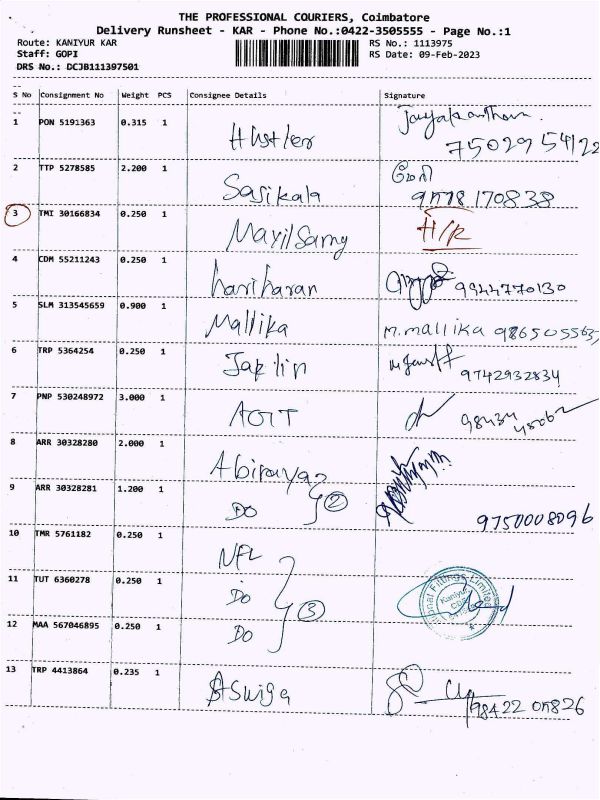 THE PROFESSIONAL COURIERS, Coimbatore
Delivery Runsheet - KAR - Phone No.:0422-3505555 - Page No.:1
Route: KANIYUR KAR RS No.: 1113975
Staff: GOPI RS Date: 09-Feb-2023
DRS No.: DCJB111397501
S No Consignment No Weight PCS Consignee Details Signature
1 PON 5191363 0.315 1 Hustler Jayakanthan
7502954122
2 TTP 5278585 2.200 1 Sasikala
170838
3 TMI 30166834 0.250 1 Mayilsamy H/R
4 CDM 55211243 0.250 1 hariharan 9944770130
5 SLM 313545659 0.900 1 Mallika m.mallika
6 TRP 5364254 0.250 1 Japlin
9742932834
7 PNP 530248972 3.000 1 AOIT 98434
8 ARR 30328280 2.000 1 Abiraya
9 ARR 30328281 1.200 1 Do 2
9750008096
10 TMR 5761182 0.250 1 NFL
11 TUT 6360278 0.250 1 Do 3
12 MAA 567046895 0.250 1 Do
13 TRP 4413864 0.235 1 Aswiga
98422